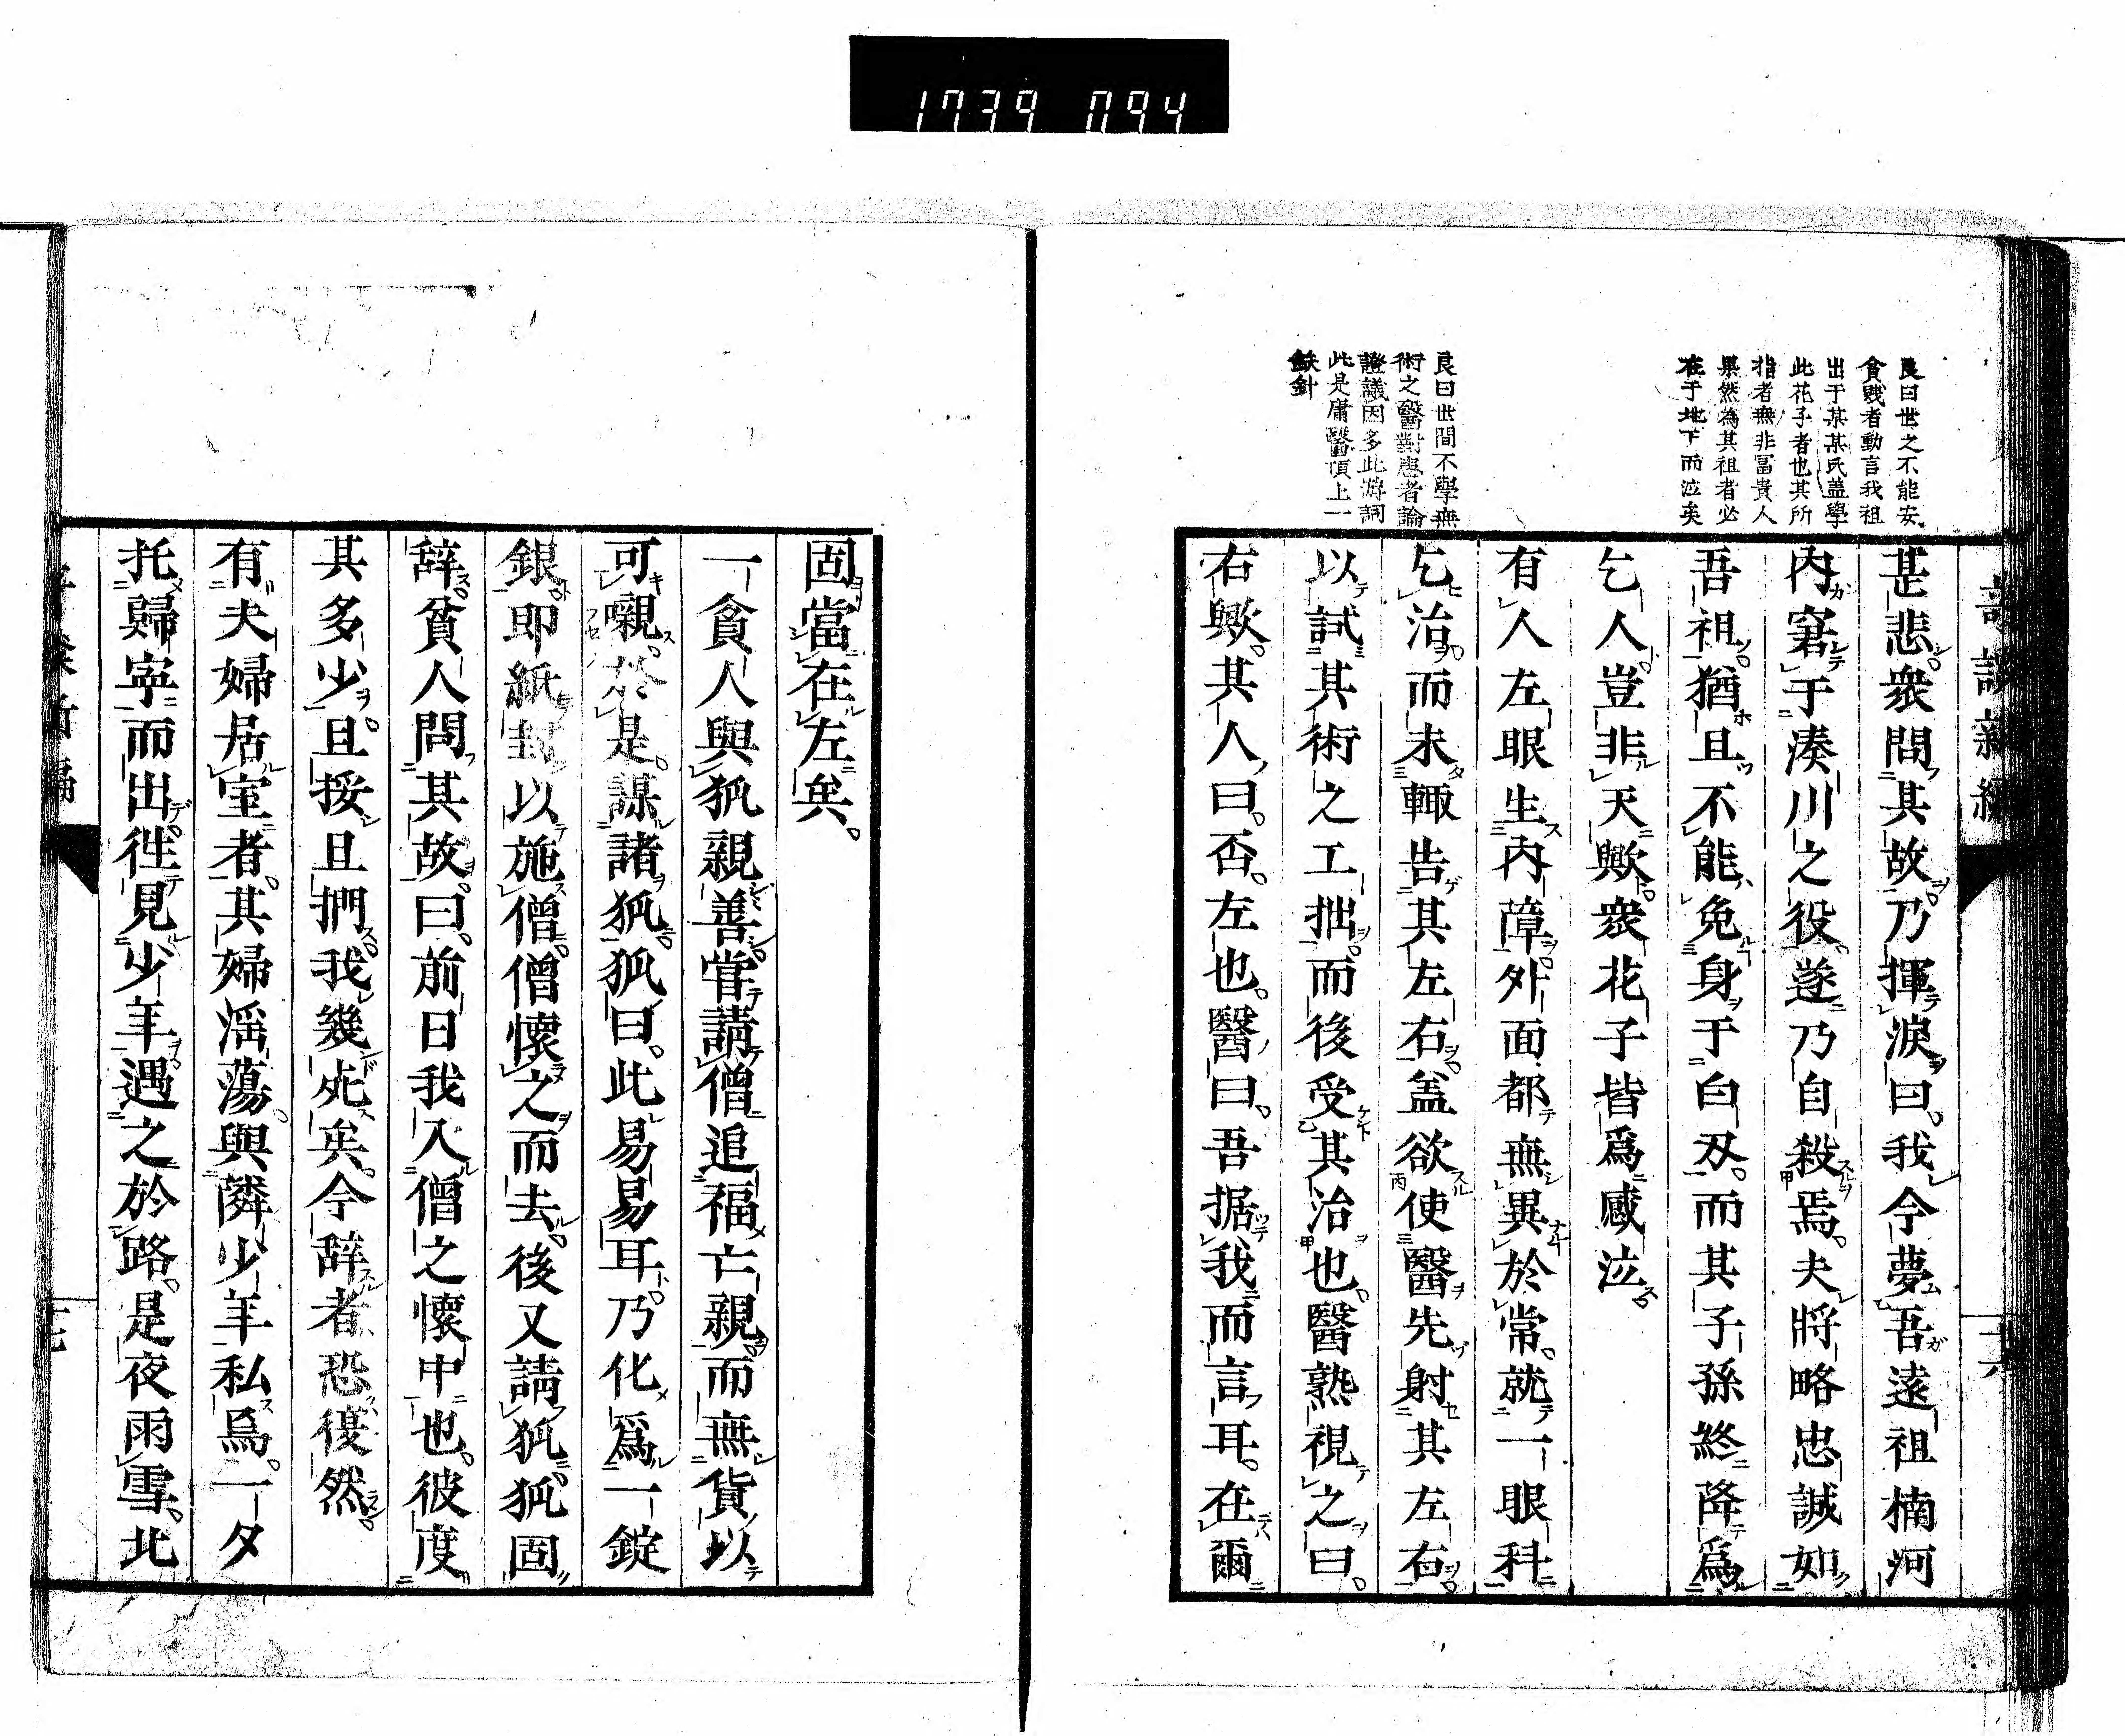 1739 094
良曰世之不能安
貪賤者動言我祖
出于某某氏蓋學
此花子者也其所
指者無非富貴人
果然為其祖者必
在于地下而泣矣
良曰世間不學無
術之醫對患者論
證議因多此游詞
此是庸醫頂上一
鉄針
甚悲衆問其故乃揮淚曰我今夢吾遠祖楠河
内窘于湊川之役遂乃自殺焉夫將略忠誠如
吾祖猶且不能免身于白刃而其子孫終降爲
乞人豈非天歟衆花子皆爲感泣
有人左眼生内障外面都無異於常就一眼科
乞治而未輙告其左右盖欲使醫先射其左右
以試其術之工拙而後受其治也醫熟視之曰
右歟其人曰否左也醫曰吾据我而言耳在爾
十六
固當在左矣
一貧人與狐親善甞請僧追福亡親而無貨以
可嚫於是謀諸狐狐曰此易易耳乃化爲一錠
銀即紙封以施僧僧懷之而去後又請狐狐固
辞貧人問其故曰前日我入僧之懷中也彼度
其多少且挼且捫我幾死矣今辞者恐復然
有夫婦居室者其婦滛蕩與隣少年私焉一夕
托歸寧而出徃見少年遇之於路是夜雨雪北
十七